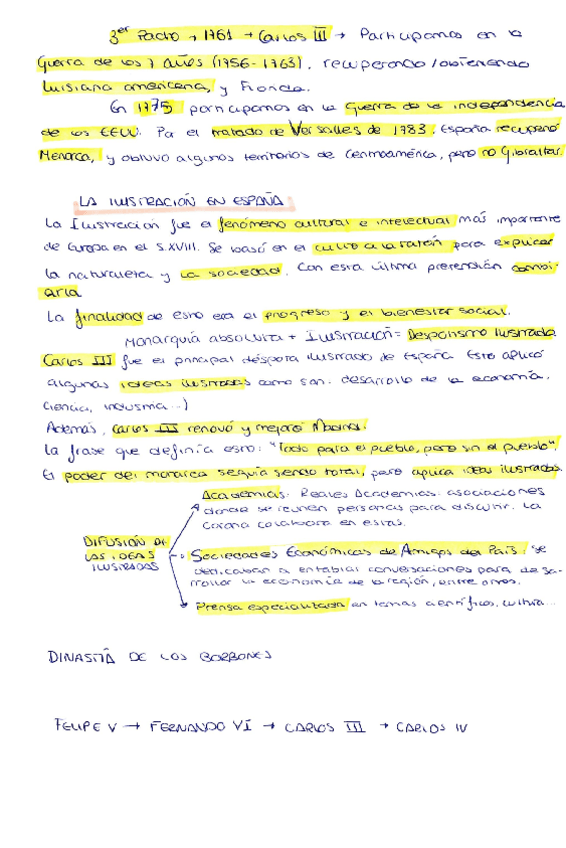 3er Pacto → 1761 → Carlos III → Participamos en la
Guerra de los 7 años (1756-1763), recuperando/obteniendo
Luisiana americana, y Florida.
En 1775 participamos en la guerra de la independencia
de los EEUU. Por el tratado de Versalles de 1783, España recuperó
Menorca, y obtuvo algunos territorios de Centroamérica, pero no Gibraltar.
LA ILUSTRACIÓN EN ESPAÑA
La Ilustración fue el fenómeno cultural e intelectual más importante
de Europa en el S.XVIII. Se basó en el culto a la razón para explicar
la naturaleza y la sociedad. Con esta última pretendían cambi-
arla
La finalidad de esto era el progreso y el bienestar social.
Monarquía absoluta + Ilustración = Despotismo Ilustrado
Carlos III fue el principal déspota ilustrado de España. Este aplicó
algunas ideas ilustradas como son: desarrollo de la economía,
ciencia, industria...)
Además, Carlos III renovó y mejoró Madrid.
La frase que definía esto: "Todo para el pueblo, pero sin el pueblo".
El poder del monarca seguía siendo total, pero aplica ideas ilustradas.
DIFUSIÓN DE
LAS IDEAS
ILUSTRADAS
Academias: Reales Academias: asociaciones
donde se reunen personas para discutir. La
corona colabora en estas.
Sociedades Económicas de Amigos del País: se
dedicaban a entablar conversaciones para desa-
rrollar la economía de la región, entre otros.
Prensa especializada en temas científicos, cultura...
DINASTÍA DE LOS BORBONES
FELIPE V → FERNANDO VI → CARLOS III → CARLOS IV